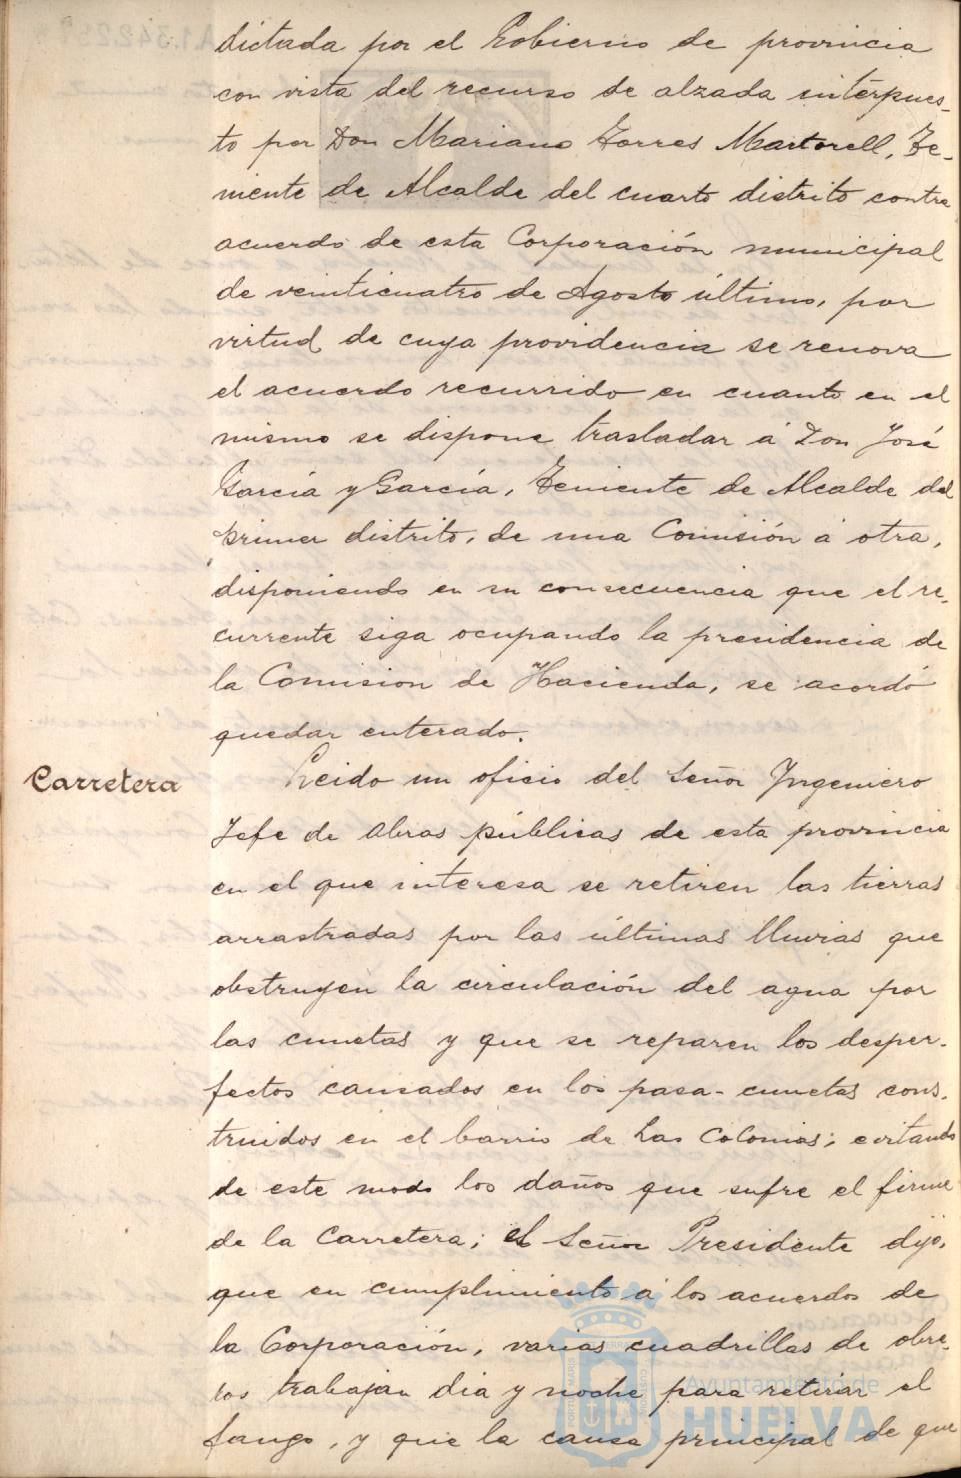 dictada por el Gobierno de provincia
con vista del recurso de alzada interpues-
to por Don Mariano Torres Martorell, Te-
niente de Alcalde del cuarto distrito contra
acuerdo de esta Corporación municipal
de veinticuatro de Agosto último, por
virtud de cuya providencia se renova
el acuerdo recurrido en cuanto en el
mismo se dispone trasladar á Don José
García y García, Teniente de Alcalde del
primer distrito, de una Comisión á otra,
disponiendo en su consecuencia que el re-
currente siga ocupando la presidencia de
la Comision de Hacienda, se acordó
quedar enterado.
Carretera
Leido un oficio del Señor Ingeniero
Jefe de Obras públicas de esta provincia
en el que interesa se retiren las tierras
arrastradas por las últimas lluvias que
obstruyen la circulación del agua por
las cunetas y que se reparen los desper-
fectos causados en los pasa-cunetas cons-
truidos en el barrio de Las Colonias; evitando
de este modo los daños que sufre el firme
de la Carretera; el Señor Presidente dijo,
que en cumplimiento á los acuerdos de
la Corporación, varias cuadrillas de obre-
ros trabajan dia y noche para retirar el
fango, y que la causa principal de que
Ayuntamiento de
HUELVA